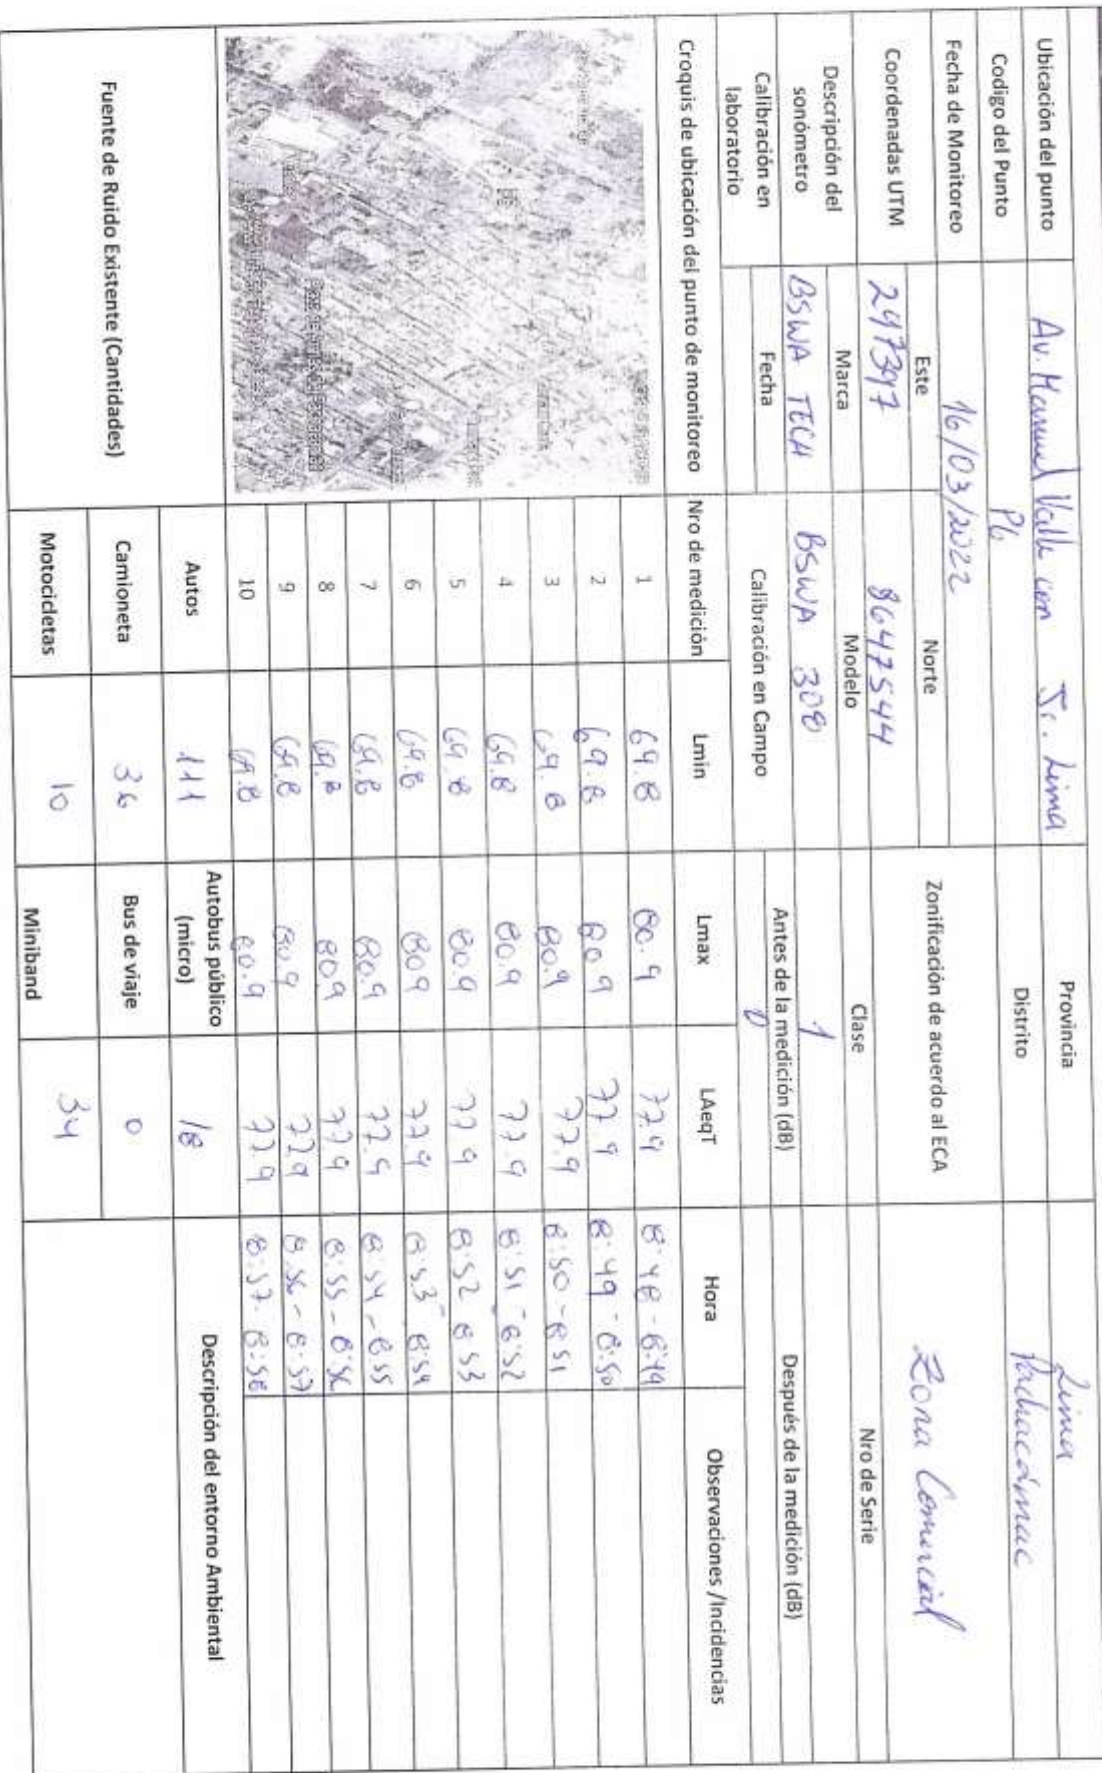 Ubicación del punto Av. Manuel Valle con Jr. Lima Provincia Lima
Codigo del Punto P6 Distrito Pachacámac
Fecha de Monitoreo 16/03/2022 Zonificación de acuerdo al ECA Zona Comercial
Coordenadas UTM Este Norte
297397 8647544
Descripción del sonómetro Marca Modelo Clase Nro de Serie
BSWA TECH BSWA 308 1
Calibración en laboratorio Fecha Calibración en Campo Antes de la medición (dB) Después de la medición (dB)
0
Croquis de ubicación del punto de monitoreo Nro de medición Lmin Lmax LAeqT Hora Observaciones /Incidencias
1 69.8 80.9 77.9 8:48 - 8:49
2 69.8 80.9 77.9 8:49 - 8:50
3 69.8 80.9 77.9 8:50 - 8:51
4 69.8 80.9 77.9 8:51 - 8:52
5 69.8 80.9 77.9 8:52 8:53
6 69.8 80.9 77.9 8:53 - 8:54
7 69.8 80.9 77.9 8:54 - 8:55
8 69.8 80.9 77.9 8:55 - 8:56
9 69.8 80.9 77.9 8:56 - 8:57
10 69.8 80.9 77.9 8:57 - 8:58
Fuente de Ruido Existente (Cantidades) Autos 111 Autobus público (micro) 18 Descripción del entorno Ambiental
Camioneta 36 Bus de viaje 0
Motocicletas 10 Miniband 34